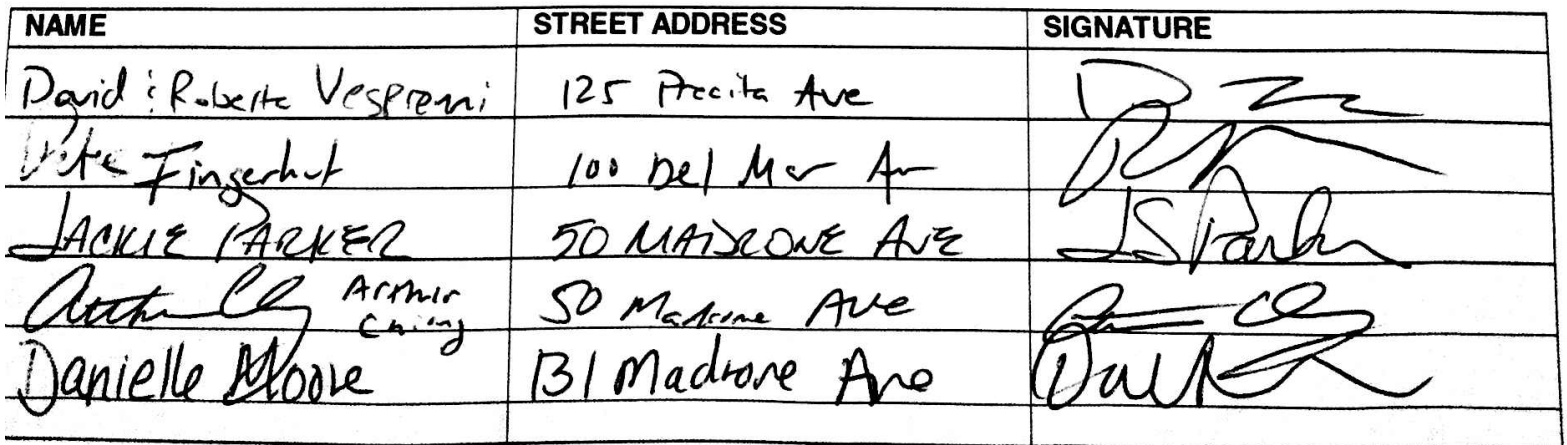 NAME STREET ADDRESS SIGNATURE
David & Roberta 125 Precita Ave
Pete Fingerhut 100 Del Mar Av
JACKIE PARKER 50 MADRONE AVE JS Parker
Arthur Chiang 50 Madrone Ave
Danielle Moore 131 Madrone Ave